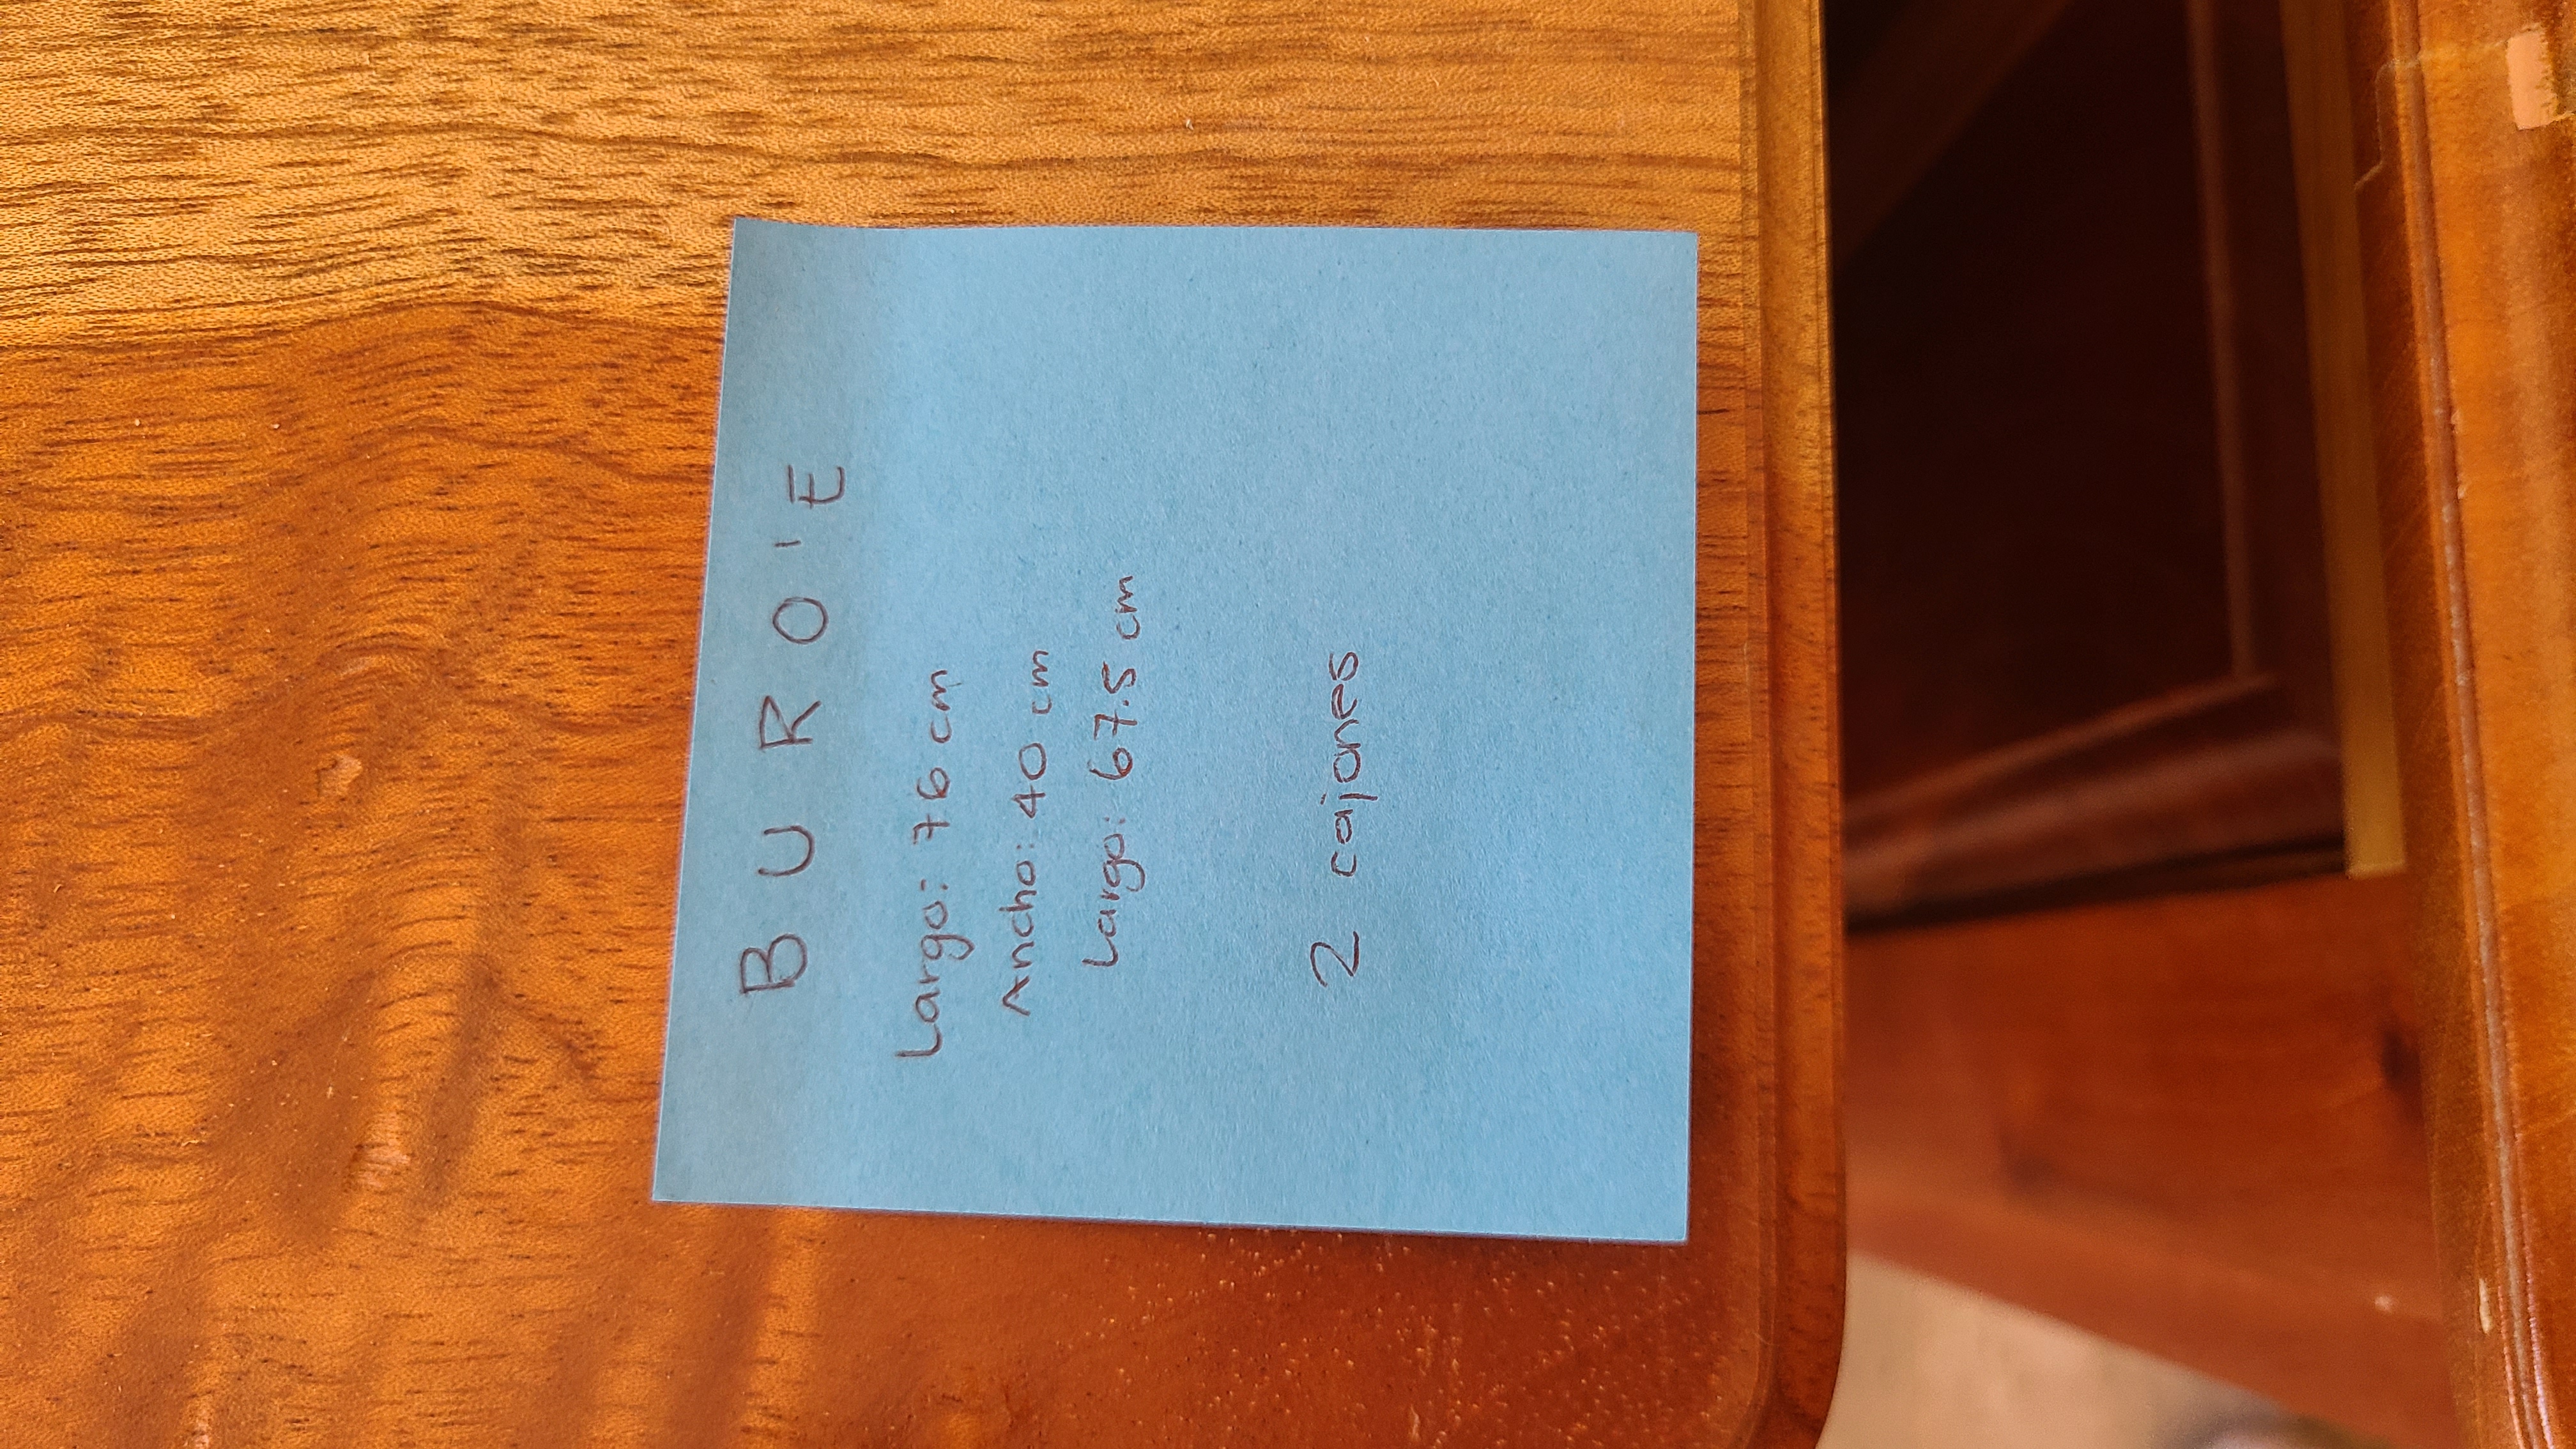 BURO'E
Largo: 76 cm
Ancho: 40 cm
Largo: 67.5 cm
2 cajones